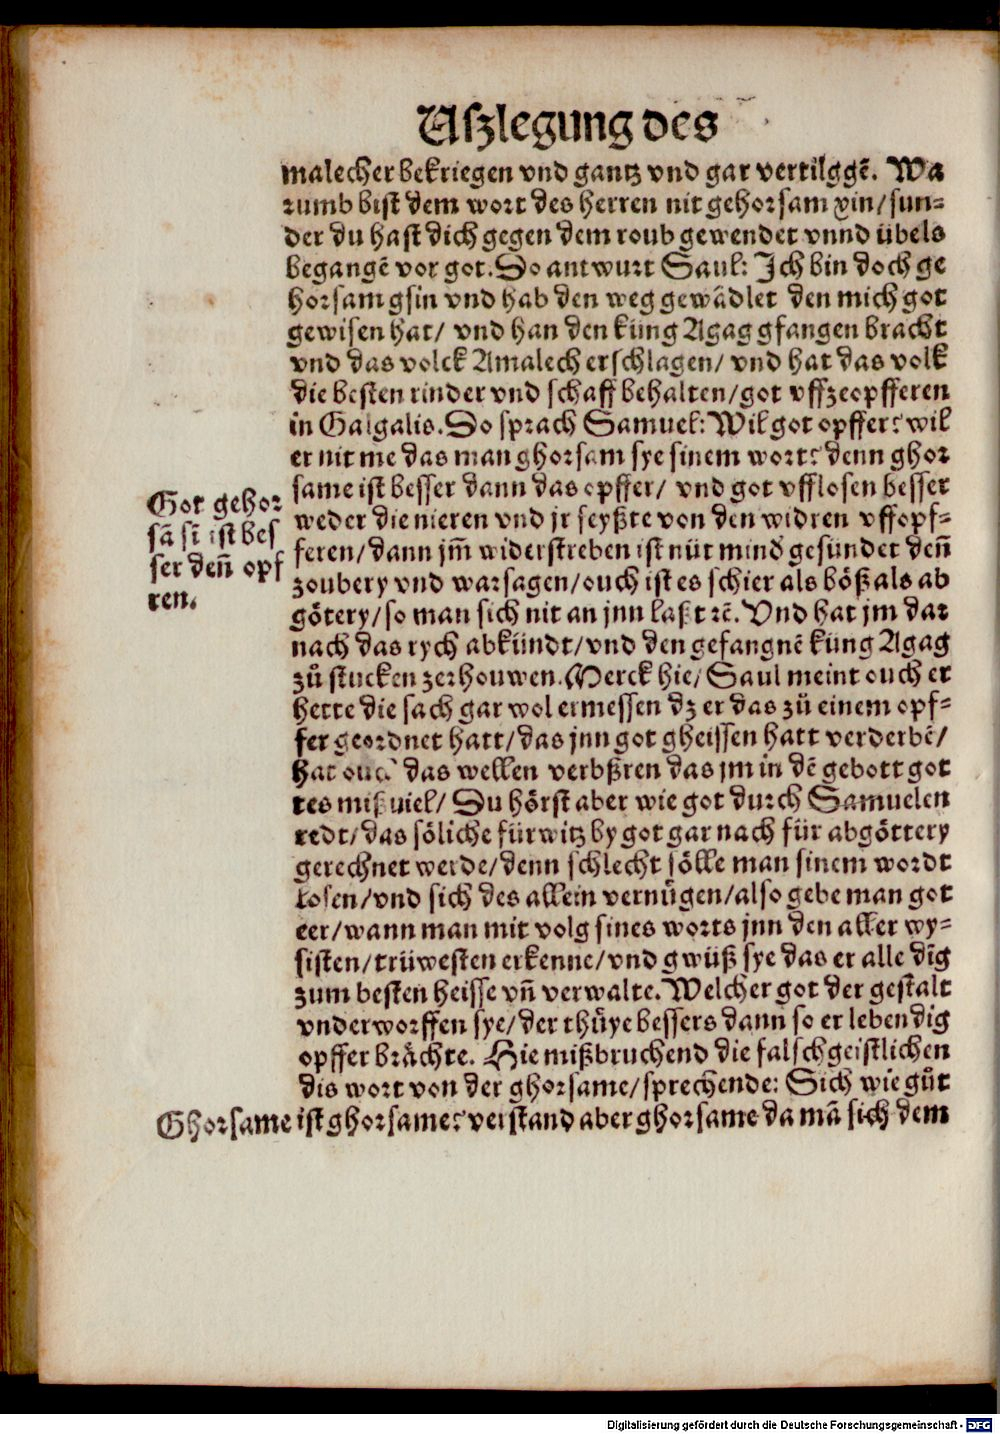 Uſzlegung des
malecher bekriegen vnd gantz vnd gar vertilggē. Wa
rumb bist dem wort des herren nit gehorsam xin/sun-
der du hast dich gegen dem roub gewendet vnnd übels
begangē vor got. So antwurt Saul: Ich bin doch ge
horsam gsin vnd hab den weg gewādlet den mich got
gewisen hat/ vnd han den küng Agag gfangen bracht
vnd das volck Amalech erschlagen/ vnd hat das volk
die besten rinder vnd schaff behalten/got vffzeopfferen
in Galgalis. So sprach Samuel: Wil got opffer? wil
er nit me das man ghorsam sye sinem wort? denn ghor
same ist besser dann das opffer/ vnd got vfflosen besser
weder die nieren vnd jr feyßte von den widren vffopf-
feren/dann jm̄ widerstreben ist nüt mind gesündet den̄
zoubery vnd warsagen/ouch ist es schier als böß als ab
götery/so man sich nit an jnn laßt rē. Vnd hat jm dar
nach das rych abkündt/vnd den gefangnē küng Agag
zů stucken zerhouwen. Merck hie/ Saul meint ouch er
hette die sach gar wol ermessen dz er das zů einem opf-
fer geordnet hatt/das jnn got gheissen hatt verderbē/
hat ouch das wellen verbßren das jm in dē gebott got
tes mißuiel/ Du hörst aber wie got durch Samuelen
redt/das söliche fürwitz by got gar nach für abgöttery
gerechnet werde/denn schlecht sölle man sinem wordt
losen/vnd sich des allein vernůgen/also gebe man got
eer/wann man mit volg sines worts jnn den aller wy-
sisten/trüwesten erkenne/vnd gwüß sye das er alle dīg
zum besten heisse vn̄ verwalte. Welcher got der gestalt
vnderworffen sye/der thůye bessers dann so er lebendig
opffer brächte. Hie mißbruchend die falschgeistlichen
dis wort von der ghorsame/sprechende: Sich wie gůt
Ghorsame ist ghorsame? verstand aber ghorsame da mā sich dem
Got gehor
sā sī ist bes
ser den̄ opf
ren.
Digitalisierung gefördert durch die Deutsche Forschungsgemeinschaft - DFG